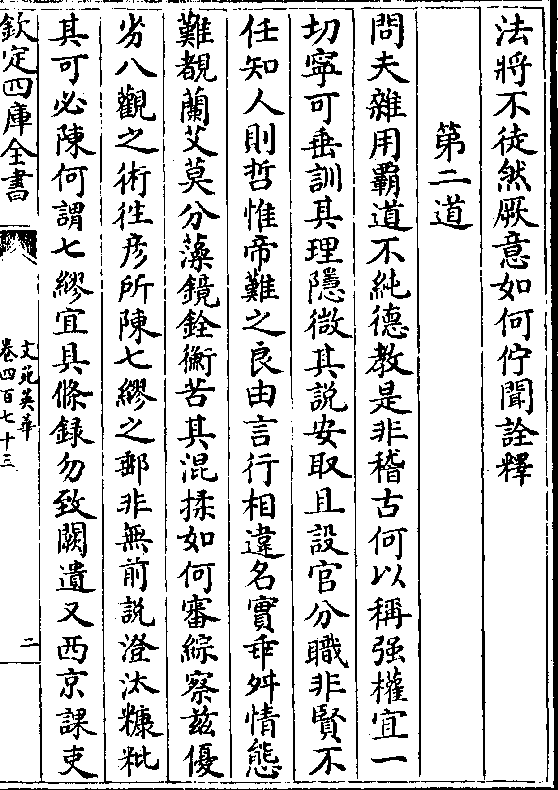 法將不徒然厥意如何佇聞詮釋
第二道
問夫雜用覇道不純德教是非稽古何以稱强權宜一
切寧可垂訓其理隱微其說安取且設官分職非賢不
任知人則哲惟帝難之良由言行相違名實乖舛情態
難覩蘭艾莫分藻鏡銓衡苦其混揉如何審綜察兹優
劣八觀之術往彦所陳七繆之郵非無前説澄汰糠粃
其可必陳何謂七繆宜具條録勿致闕遺又西京課吏
欽定四庫全書
文苑英華
卷四百七十三
二